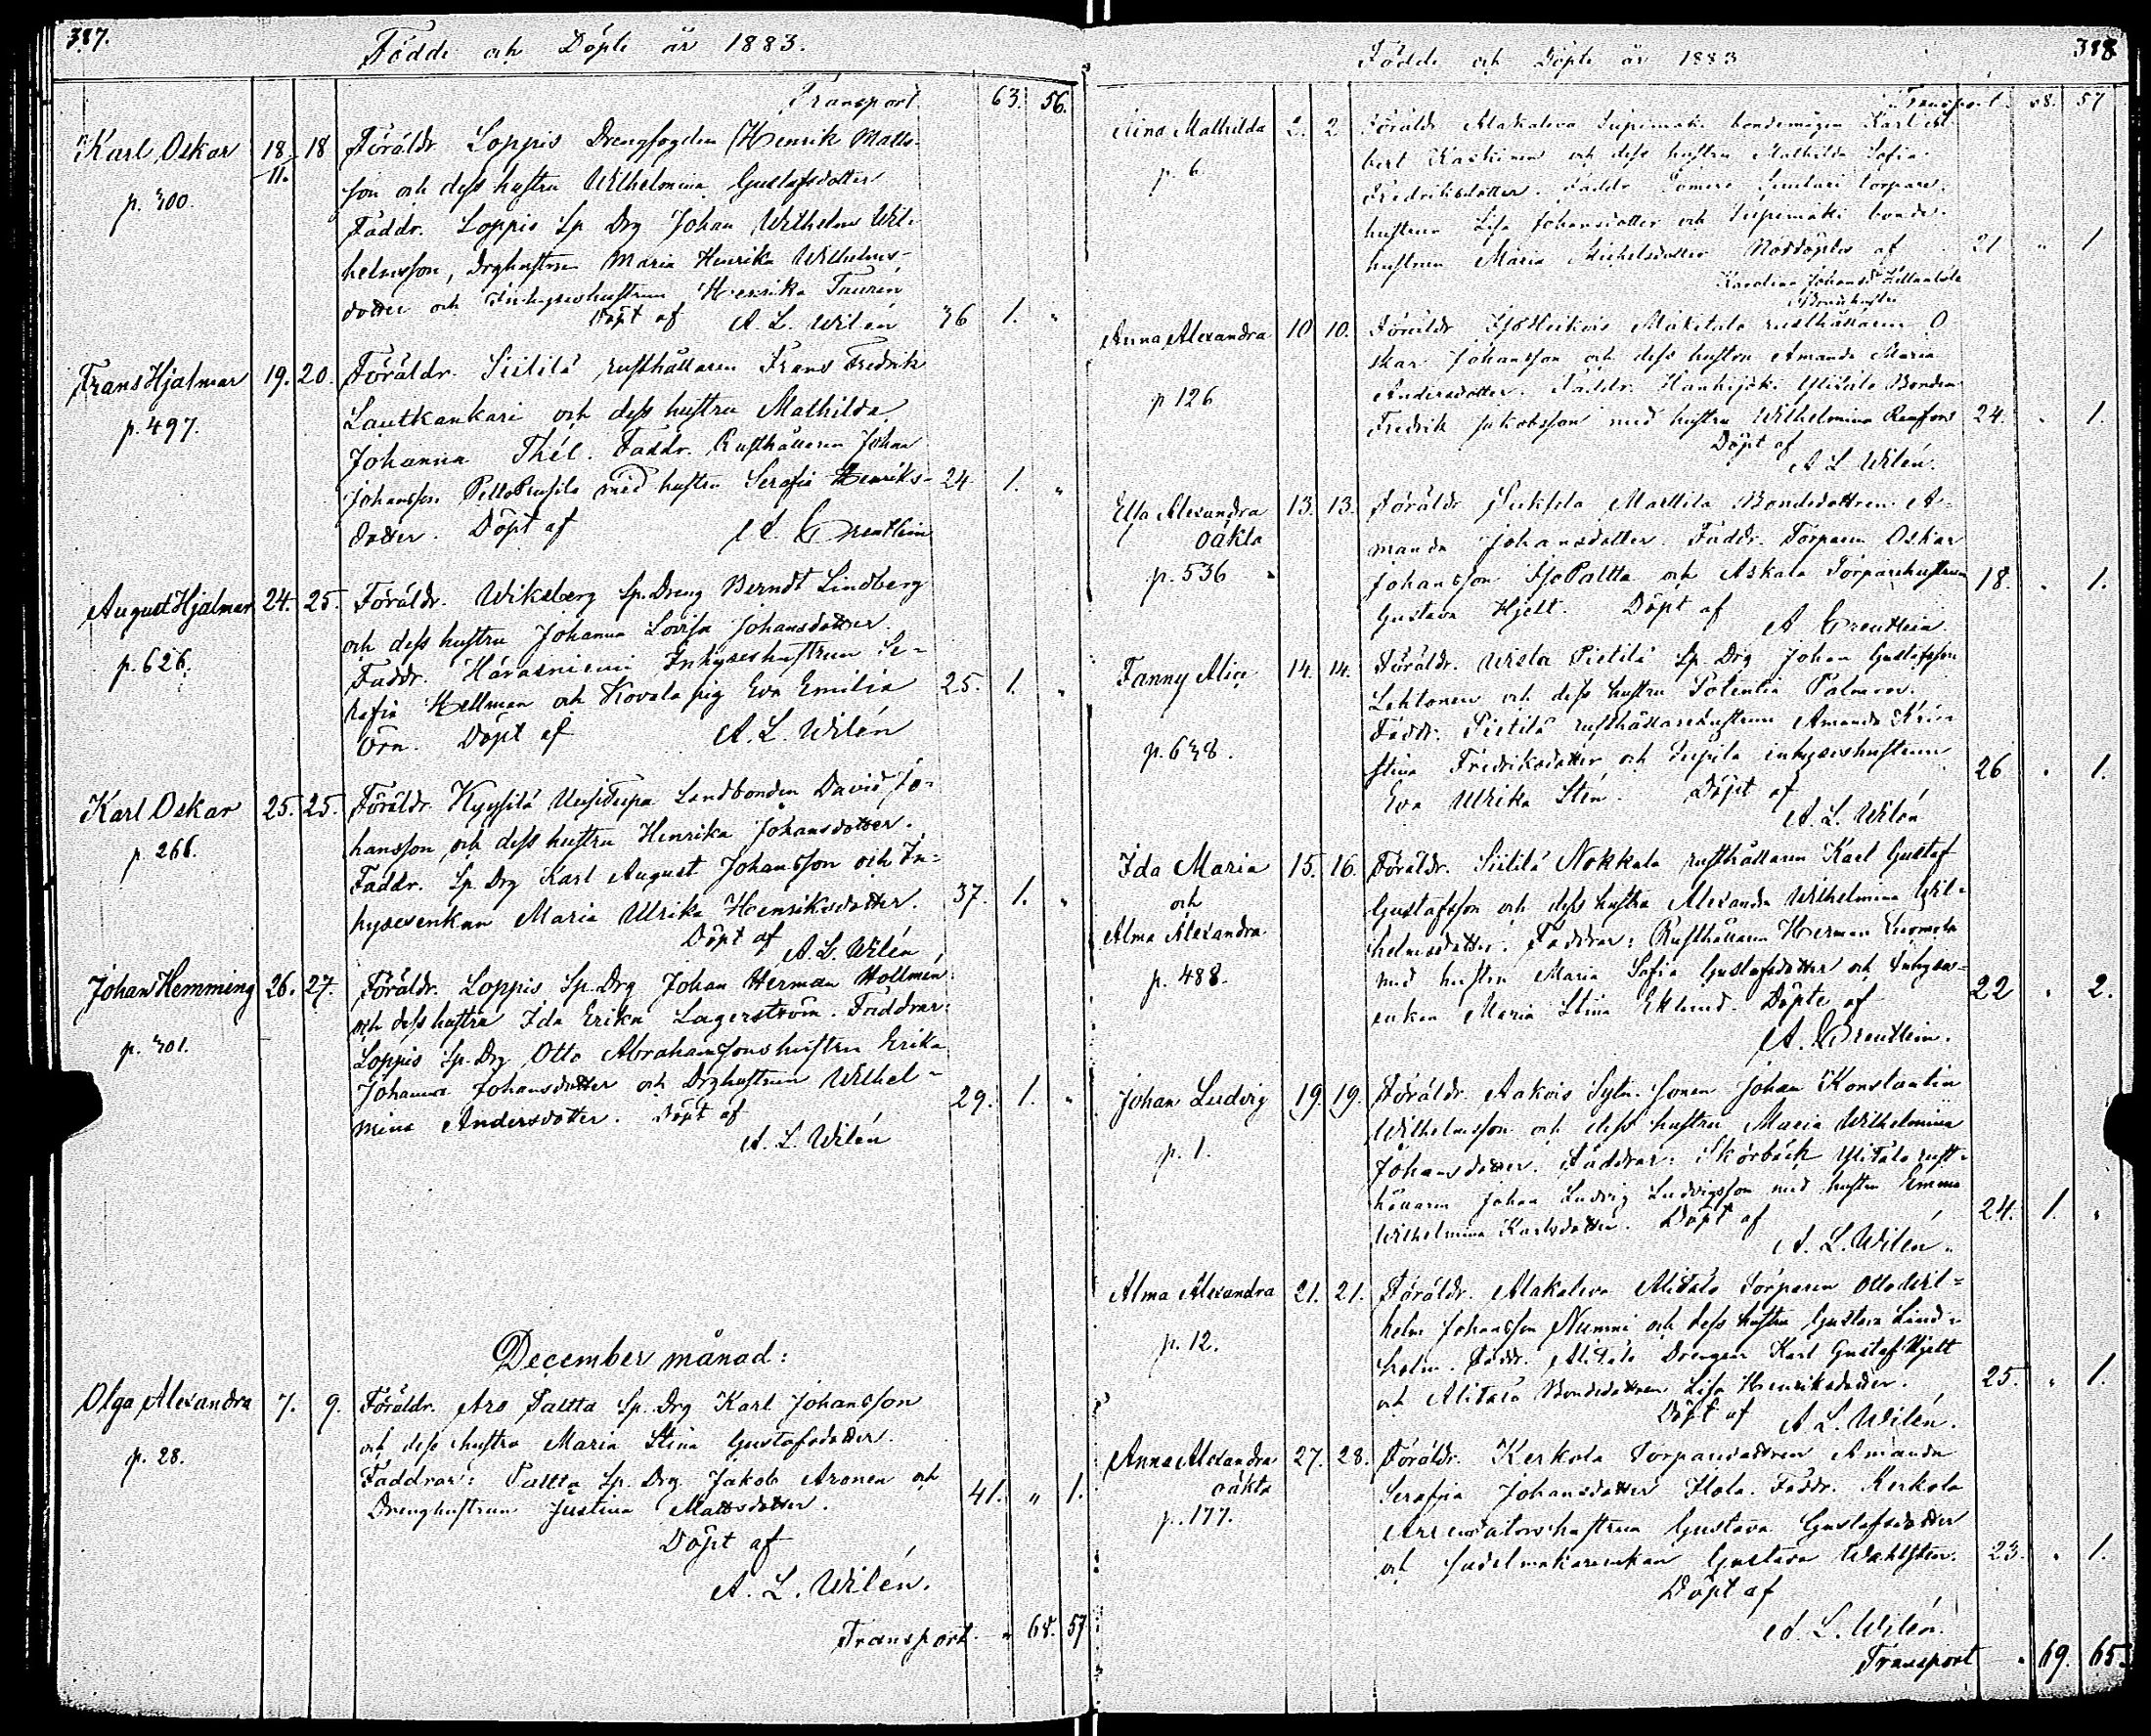 387.
Födde och Döpte år 1883.
Transport 63. 56.
Karl Oskar 18/11. 18 Föräldr. Loppis Drengfogden Henrik Matts-
p. 300. son och dess hustru Wilhelmina Gustafsdotter
Faddr. Loppis Sp Drg Johan Wilhelm Wil-
helmsson, drghustrun Maria Henrika Wilhelms-
dotter och Inhyseshustrun Henrika Taurén
Döpt af A. L. Wilén 36 1. "
Frans Hjalmar 19. 20. Föräldr. Siitilä rusthållaren Frans Fredrik
p. 497. Lautkankari och dess hustru Mathilda
Johanna Thél. Faddr. Rusthållaren Johan
Johansson med hustru Serafia Henriks- 24 1. "
dotter. Döpt af A. Grenthein
August Hjalmar 24. 25. Föräldr. Wiksberg Sp. Dreng Berndt Lindberg
och dess hustru Johanna Lovisa Johansdotter
p. 626. Faddr. Harasniemi Inhyseshustrun Se-
rafia Hellman och Kovala pig Eva Emilia 25. 1. "
Örn. Döpt af A. L. Wilén
Karl Oskar 25. 25. Föräldr. Kyysilä Uusitupa Landbonden David Jo-
p. 266. hansson, och dess hustru Henrika Johansdotter.
Faddr. Sp. Drg Karl August Johansson och In-
hysesenkan Maria Ulrika Henriksdotter. 37. 1. "
Döpt af A. L. Wilén
Johan Hemming 26. 27. Föräldr. Loppis Sp. Drg Johan Herman Hollmén
och dess hustru Ida Erika Lagerström. Faddrar:
p. 301. Loppis Sp. Drg Otto Abrahamssons hustru Erika
Johanna Johansdotter och Drghustrun Wilhel- 29. 1. "
mina Andersdotter. Döpt af
A. L. Wilén
December månad:
Olga Alexandra 7. 9. Föräldr. Aro Paltta Sp. Drg Karl Johansson
och dess hustru Maria Stina Gustafsdotter.
p. 28. Faddrar: Paltta Sp. Drg. Jakob Aronen och
Drenghustrun Justina Mattsdotter. 41. " 1.
Döpt af
A. L. Wilén.
Transport " 68. 57
388
Födde och Döpte år 1883
Transport 68. 57
Mathilda 2. 2 Föräldr. Alakaleva Seppimäki bondemågen Karl
p. 6 Kaskinen och dess hustru Mathilda Sofia
Fredriksdotter. Faddr. torpare-
hustrun Lisa Johansdotter och bonde-
hustrun Maria Michelsdotter Nöddöpt af 21 " 1
Karolina Johansd.
Anna Alexandra 10 10. Föräldr. Mäkitalo rusthållaren O-
skar Johansson och dess hustru Amanda Maria
p 126 Andersdotter. Faddr. Hankijoki Ylitalo Bonden
Fredrik Jakobsson med hustru Wilhelmina Renfors 24. " 1.
Döpt af
A L Wilén.
Elsa Alexandra 13. 13. Föräldr. Marttila Bondedottren A-
oäkta manda Johansdotter. Faddr. Torparen Oskar
p. 536 Johansson Iso Paltta och Askala Torparehustrun 18. " 1.
Gustava Hjelt. Döpt af
A Grenthein.
Fanny Alice 14. 14. Föräldr. Wirta Pietilä Sp. Drg Johan Gustafsson
Lehtonen och dess hustru Potentia Palmros.
Faddr. Pietilä rusthållarehustrun Amanda Kris-
p. 638. stina Fredriksdotter och inhyseshustrun 26 " 1.
Eva Ulrika Stén. Döpt af
A. L. Wilén
Ida Maria 15. 16. Föräldr. Siitilä Nokkala rusthållaren Karl Gustaf
och Gustafsson och dess hustru Alexandra Wilhelmina Wil-
Alma Alexandra helmsdotter. Faddrar: Rusthållaren Herman
p. 488. med hustru Maria Sofia Gustafsdotter och Inhyses- 22 " 2.
enkan Maria Stina Eklund. Döpte af
A. Grenthein.
Johan Ludvig 19. 19. Föräldr. Aakois Sytn. sonen Johan Konstantin
Wilhelmsson och dess hustru Maria Wilhelmina
p. 1. Johansdotter. Faddrar: Skörbäck Ylitalo rust-
hållaren Johan Ludvig Ludvigsson med hustru Emma 24. 1. "
Wilhelmina Karlsdotter. Döpt af
A. L. Wilén.
Alma Alexandra 21. 21. Föräldr. Alakaleva Alitalo torparen Otto Wil-
p. 12. helm Johansson Nummi och dess hustru Gustava Lind-
holm. Faddr. Alitalo Drengen Karl Gustaf Hjelt
och Alitalo Bondedottren Lisa Henriksdotter. 25. " 1.
Döpt af A. L. Wilén.
Anna Alexandra 27. 28. Föräldr. Kerkola Torparedottren Amanda
oäkta Serafia Johansdotter Hola. Faddr. Kerkola
p. 177. Arrendatorshustrun Gustava Gustafsdotter
och sadelmakareenkan Gustava Wahlsten. 23. " 1.
Döpt af
A. L. Wilén.
Transport " 69. 65.